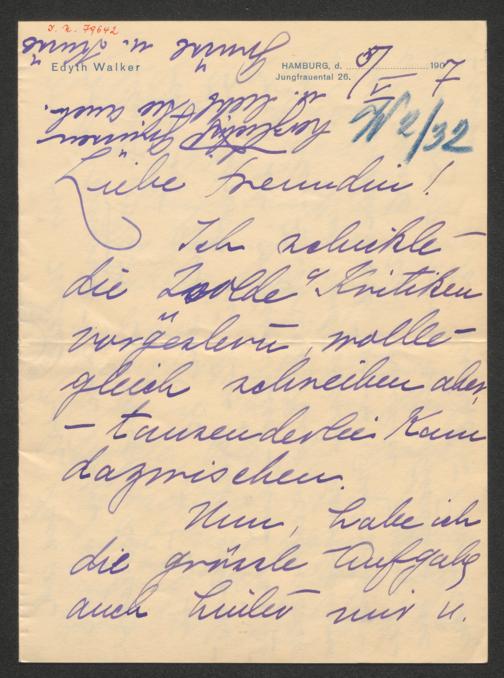 I. N. 79642
Edyth Walker
HAMBURG, d. 8/VI 1907
Jungfrauental 26.
W 2/32
Liebe Freundin!
Ich schickte
die Isolde Kritiken
vorgestern, wollte
gleich schreiben aber,
– tausenderlei kam
dazwischen.
Nun, habe ich
die grösste Aufgabe
auch hinter mir u.
Grüsse u. Küsse
herzlichst
u.
Sie auch.